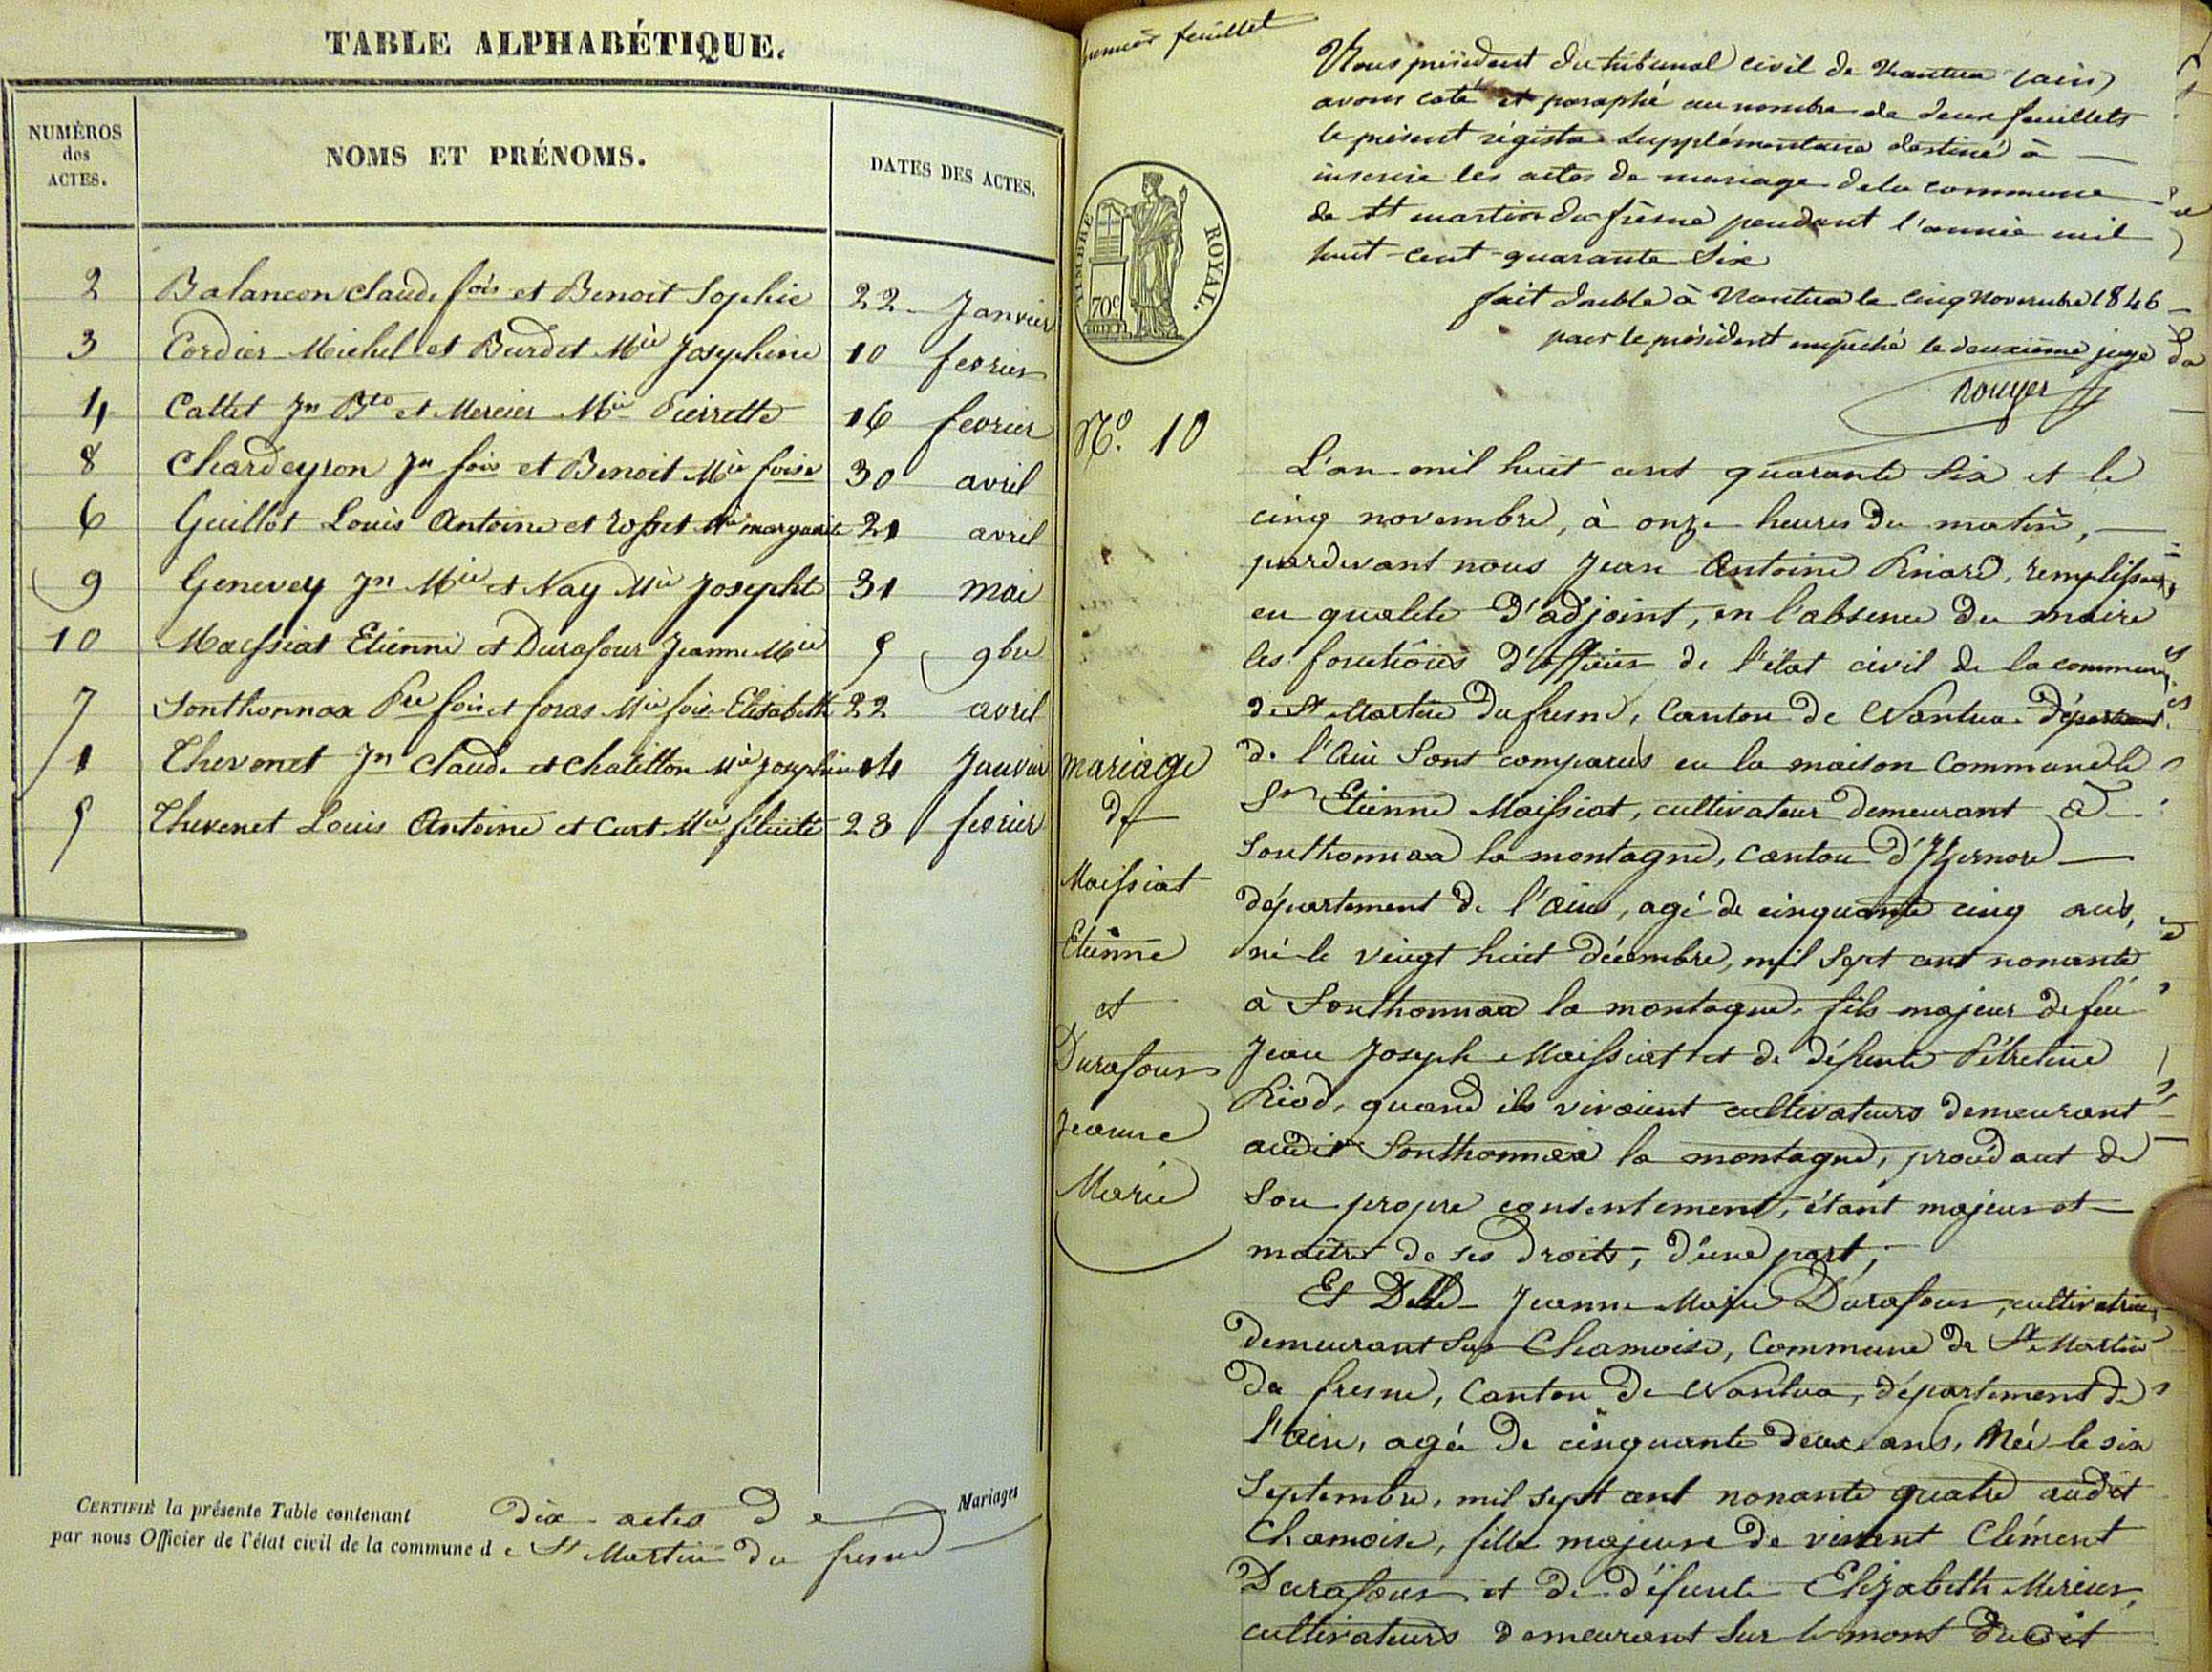 TABLE ALPHABÉTIQUE.
NUMÉROS
des
ACTES.
NOMS ET PRÉNOMS.
DATES DES ACTES.
2 Balancon claude fois et Benoit Sophie 22 Janvier
3 Cordier Michel et Burdet Mie Josephine 10 fevrier
4 Cattet Jn Bte et Mercier Mie Pierrette 16 fevrier
8 Chardeyron Jn fois et Benoit Mie foise 30 avril
6 Guillot Louis Antoine et rosset Mie margueite 21 avril
9 Genevey Jn Mie et Nay Mie Josephte 31 mai
10 Maissiat Etienne et Durafour Jeanne Mie 5 9bre
7 Sonthonnax Pre fois et foras Mie foise Elisabeth 22 avril
1 Thevenet Jn Claude et Chatillon Mie Josephine 14 Janvier
5 Thevenet Louis Antoine et Curt Mie félicité 23 fevrier
CERTIFIÉ la présente Table contenant dix actes de Mariages
par nous Officier de l'état civil de la commune de St Martin du fresne
premier feuillet
Nous président du tribunal civil de Nantua (ain)
avons coté et paraphé au nombre de deux feuillets
le présent régistre supplémentaire destiné à
inscrire les actes de mariage de la commune
de St martin du frêsne pendant l'année mil
huit-cent-quarante six
fait double à Nantua le cinq novembre 1846
pour le président empêché le deuxième juge
Rouyer
TIMBRE ROYAL.
70c
No. 10
L'an mil huit cent quarante six et le
cinq novembre, à onze heures du matin,
pardevant nous Jean Antoine Piniard, remplissant
en qualite d'adjoint, en l'absence du maire
les fonctions d'officier de l'état civil de la commune
de St Martin du fresne, Canton de Nantua département
de l'Ain sont comparus en la maison Commune le
Sr Etienne Maissiat, cultivateur demeurant à
Sonthonnax la montagne, canton d'Izernore
département de l'ain, agé de cinquante cinq ans,
né le vingt huit décembre, mil sept cent nonante
à Sonthonnax la montagne, fils majeur de feu
Jean Joseph Maissiat et de défunte Pétreline
Riod, quand ils vivaient cultivateurs demeurant
audit Sonthonnax la montagne, procédant de
son propre consentement, étant majeur et
maître de ses droits, d'une part,
Et Delle Jeanne Marie Durafour, cultivatrice,
demeurant sur Chamoise, Commune de St Martin
du fresne, Canton de Nantua, département de
l'ain, agée de cinquante deux ans, Née le six
Septembre, mil sept cent nonante quatre audit
Chamoise, fille majeure de vivant Clément
Durafour et de défunte Elizabeth Mercier,
cultivateurs demeurant sur le mont dudit
mariage
de
Maissiat
Etienne
et
Durafour
Jeanne
Marie